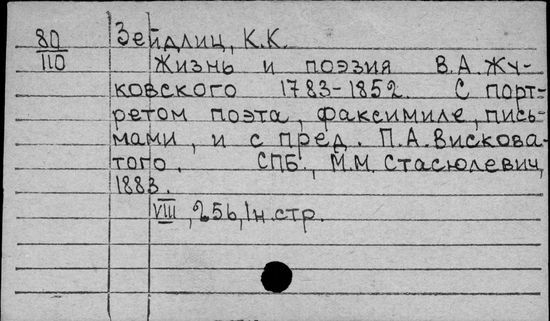 80 Зейдлиц, К.К.
110 Жизнь и поэзия В.А.Жу-
ковского 1783-1852. С порт-
ретом поэта, факсимиле, пись-
мами, и с пред. П.А.Вискова-
того. СПБ., М.М.Стасюлевич,
1883.
VIII, 256, 1н.стр.